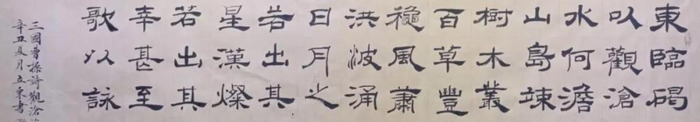 東臨碣
以觀滄
水何澹
山島竦
樹木叢
百草豐
穐風蕭
洪波涌
日月之
若出其
星漢燦
若出其
幸甚至
歌以詠
三國曹操詩觀滄
辛丑夏月立東書